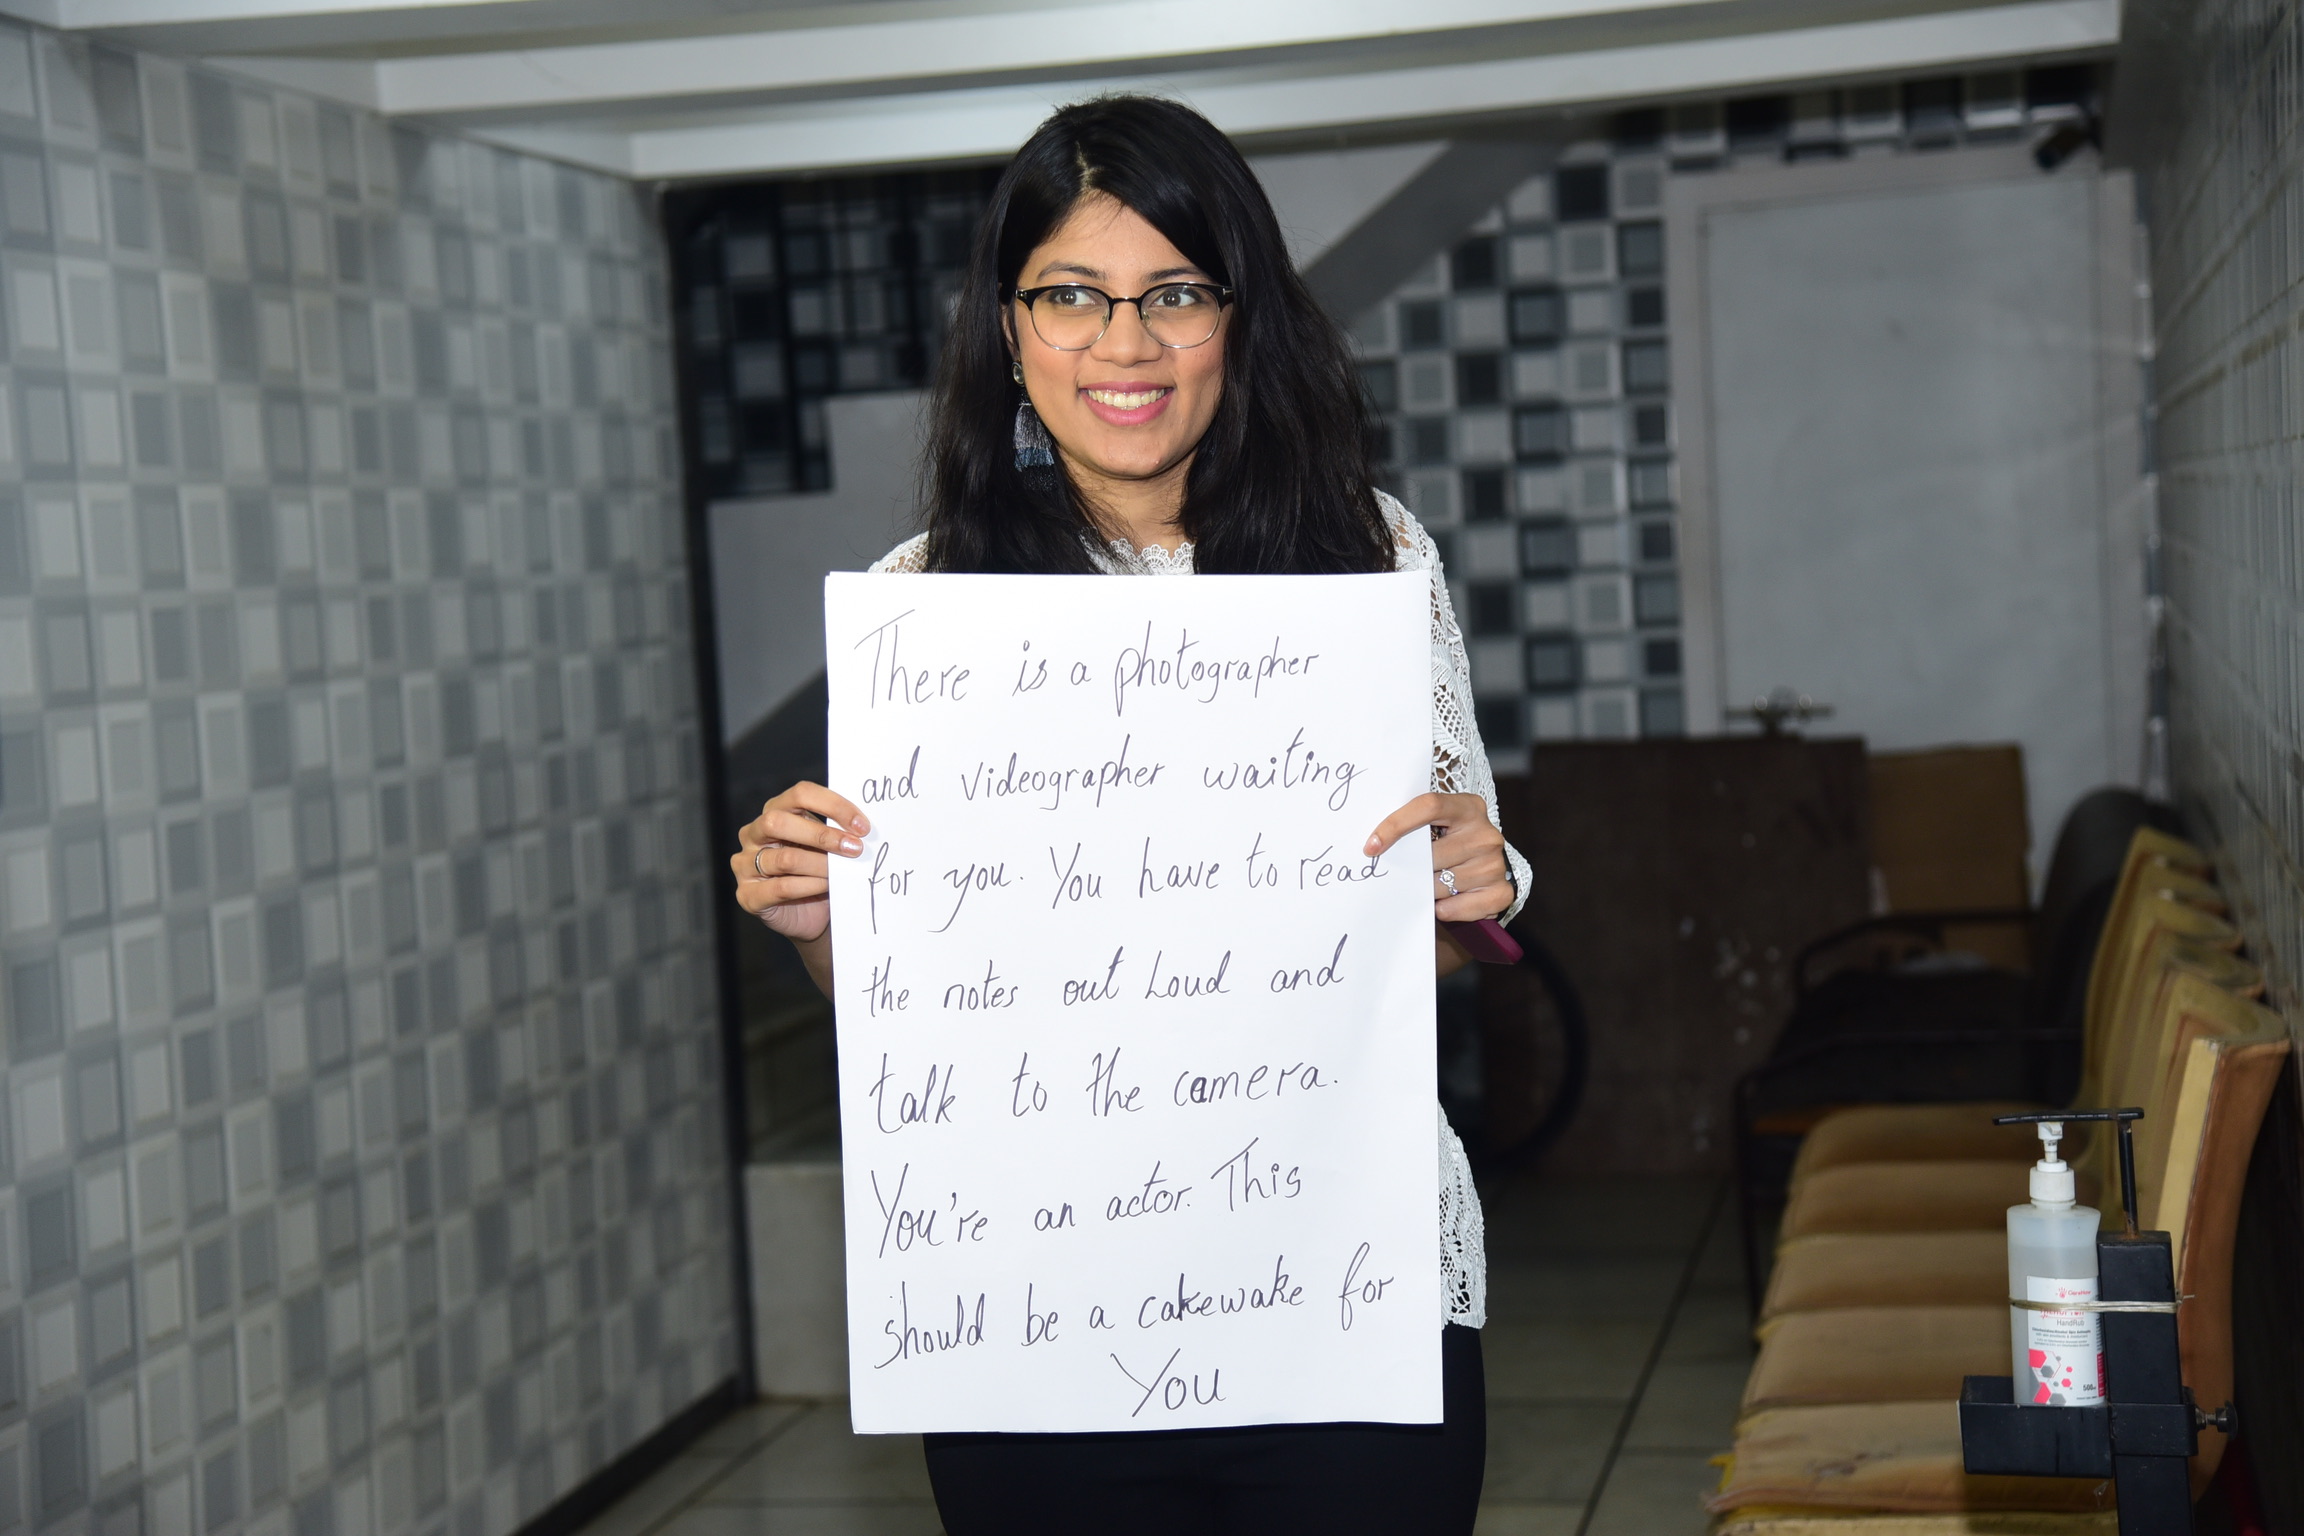 There is a photographer
and videographer waiting
for you. You have to read
the notes out Loud and
talk to the camera.
You're an actor. This
should be a cakewake for
You
HandRub
500